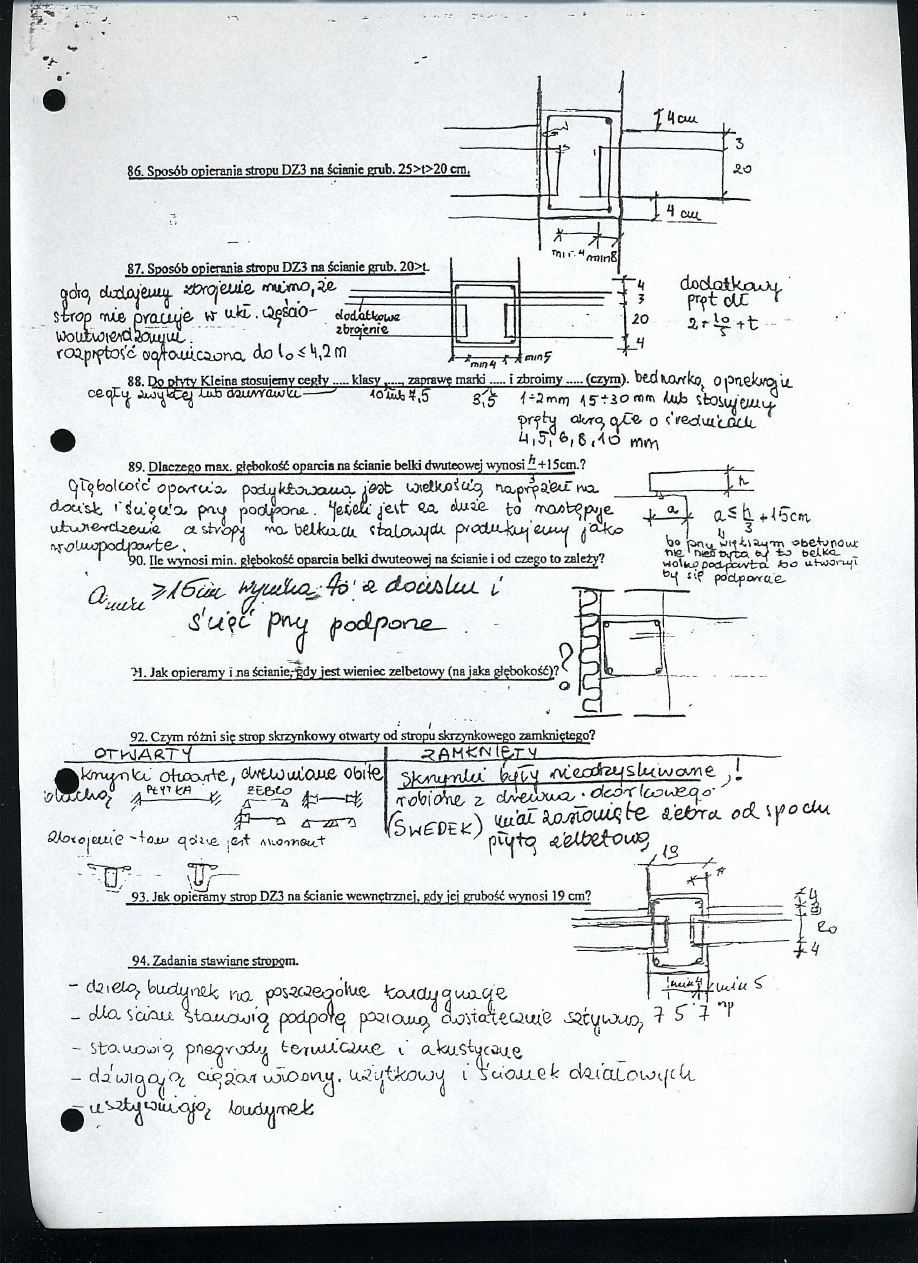 4 cm
3
20
86. Sposób opierania stropu DZ3 na ścianie grub. 25>t>20 cm.
4 cm
min.4 min8
87. Sposób opierania stropu DZ3 na ścianie grub. 20>t.
górą dodajemy zbrojenie mimo, że
strop nie pracuje w ukł. częścio-
woutwierdzonym.
rozpiętość ograniczona do l₀ ≤ 4,2 m
dodatkowe
zbrojenie
4
3
20
4
min 4 min 5
dodatkowy
pręt dł
88. Do płyty Kleina stosujemy cegły ..... klasy ....., zaprawę marki ..... i zbroimy ..... (czym). bednarką o przekroju
cegły zwykłej lub dziurawki 10 lub 7,5 8,5 1÷2mm 15÷30 mm lub stosujemy
pręty okrągłe o średnicach
4,5,6,8,10 mm
89. Dlaczego max. głębokość oparcia na ścianie belki dwuteowej wynosi h/3+15cm.?
Głębokość oparcia podyktowana jest wielkością naprężeń na
docisk i ścięcia przy podporze. Jeżeli jest za duże to następuje
utwierdzenie a stropy na belkach stalowych produkujemy jako
wolnopodparte.
h
a
a ≤ h/3 + 15cm
bo przy większym obetonow
nie byłaby to belka
wolnopodparta bo utworzył
by się podparcie
90. Ile wynosi min. głębokość oparcia belki dwuteowej na ścianie i od czego to zależy?
a min ≥ 15cm wynika to z docisku i
ścięć przy podporze
91. Jak opieramy i na ścianie, gdy jest wieniec żelbetowy (na jaka głębokość)?
?
92. Czym różni się strop skrzynkowy otwarty od stropu skrzynkowego zamkniętego?
OTWARTY ZAMKNIĘTY
skrzynki otwarte, drewniane obite
blachą PŁYTKA ŻEBRO
zbrojenie - tam gdzie jest moment
skrzynki były nieodzyskiwane!
robione z drewna okorkowego
(SWEDEK) miał zasłonięte żebra od spodu
płytą żelbetową
19
93. Jak opieramy strop DZ3 na ścianie wewnętrznej, gdy jej grubość wynosi 19 cm?
4
3
20
4
min4 min 5
7 5 7 np
94. Zadania stawiane stropom.
- dzielą budynek na poszczególne kondygnacje
- dla ścian stanowią podporę poziomą dostatecznie sztywną
- stanowią przegrody termiczne i akustyczne
- dźwigają ciężar własny, użytkowy i ścianek działowych
- usztywniają budynek